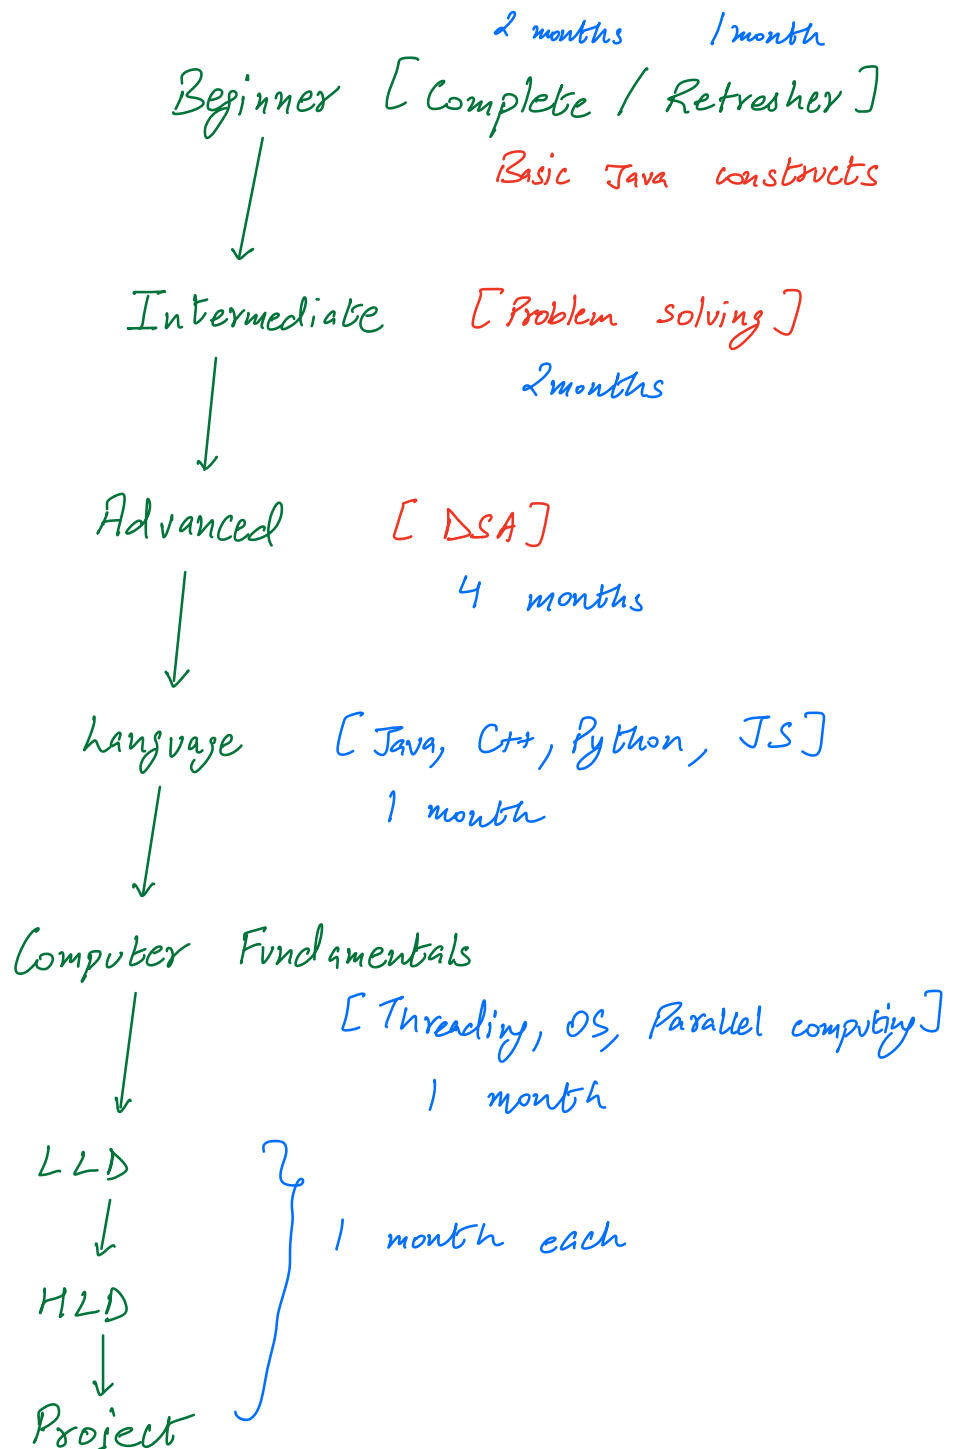 2 months 1 month
Beginner [Complete / Refresher]
Basic Java constructs
Intermediate [Problem solving]
2 months
Advanced [DSA]
4 months
Language [Java, C++, Python, JS]
1 month
Computer Fundamentals
[Threading, OS, Parallel computing]
1 month
LLD
1 month each
HLD
Project